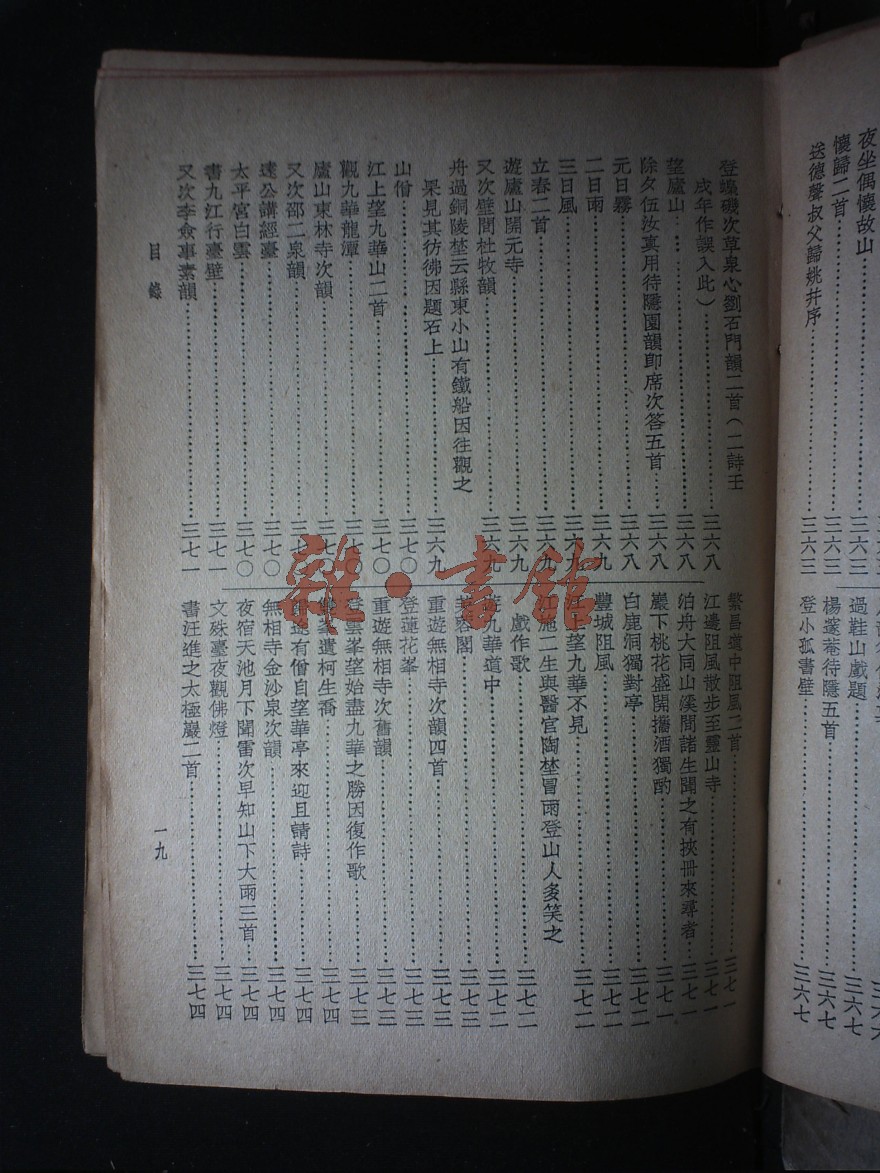 夜坐偶懷故山
懷歸二首……三六三
送德聲叔父歸姚并序……三六三
過鞋山戲題……三六七
楊邃菴待隱五首……三六七
登小孤書壁……三六七
登蟂磯次草泉心劉石門韻二首（二詩壬
戌年作誤入此）……三六八
望廬山……三六八
除夕伍汝真用待隱園韻卽席次答五首……三六八
元日霧……三六八
二日雨……三六九
三日風……三六九
立春二首……三六九
遊廬山開元寺……三六九
又次壁間杜牧韻……三六九
舟過銅陵埜云縣東小山有鐵船因往觀之
果見其彷彿因題石上……三六九
山僧……三七〇
江上望九華山二首……三七〇
觀九華龍潭……三七〇
廬山東林寺次韻……三七〇
又次邵二泉韻……三七〇
遠公講經臺……三七〇
太平宮白雲……三七〇
書九江行臺壁……三七一
又次李僉事素韻……三七一
繁昌道中阻風二首……三七一
江邊阻風散步至靈山寺……三七一
泊舟大同山溪間諸生聞之有挾冊來尋者……三七一
巖下桃花盛開攜酒獨酌……三七一
白鹿洞獨對亭……三七二
豐城阻風……三七二
江上望九華不見……三七二
江施二生與醫官陶埜冒雨登山人多笑之
戲作歌……三七二
遊九華道中……三七二
芙蓉閣……三七三
重遊無相寺次韻四首……三七三
登蓮花峯……三七三
重遊無相寺次舊韻……三七三
登雲峯望始盡九華之勝因復作歌……三七三
雙峯遺柯生喬……三七四
歸途有僧自望華亭來迎且請詩……三七四
無相寺金沙泉次韻……三七四
夜宿天池月下聞雷次早知山下大雨三首……三七四
文殊臺夜觀佛燈……三七四
書汪進之太極巖二首……三七四
目錄
一九
雜·書館